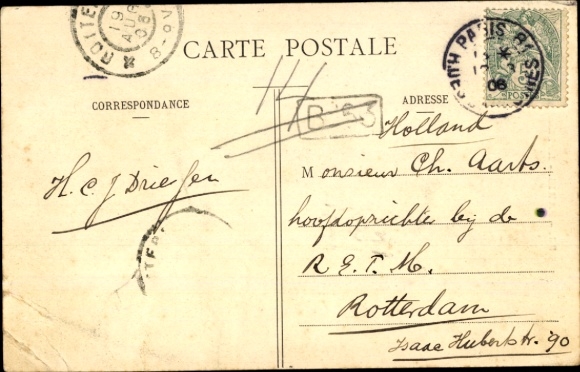 CARTE POSTALE
CORRESPONDANCE
ADRESSE
ROTTE
19
AUG
8-9V
PARIS
06
POSTES
B 23
Holland
Monsieur Ch. Aarts.
hoofdopzichter bij de
R. E. T. M.
Rotterdam
Isaac Hubertstr. 90
H. C. J Driessen
TERD